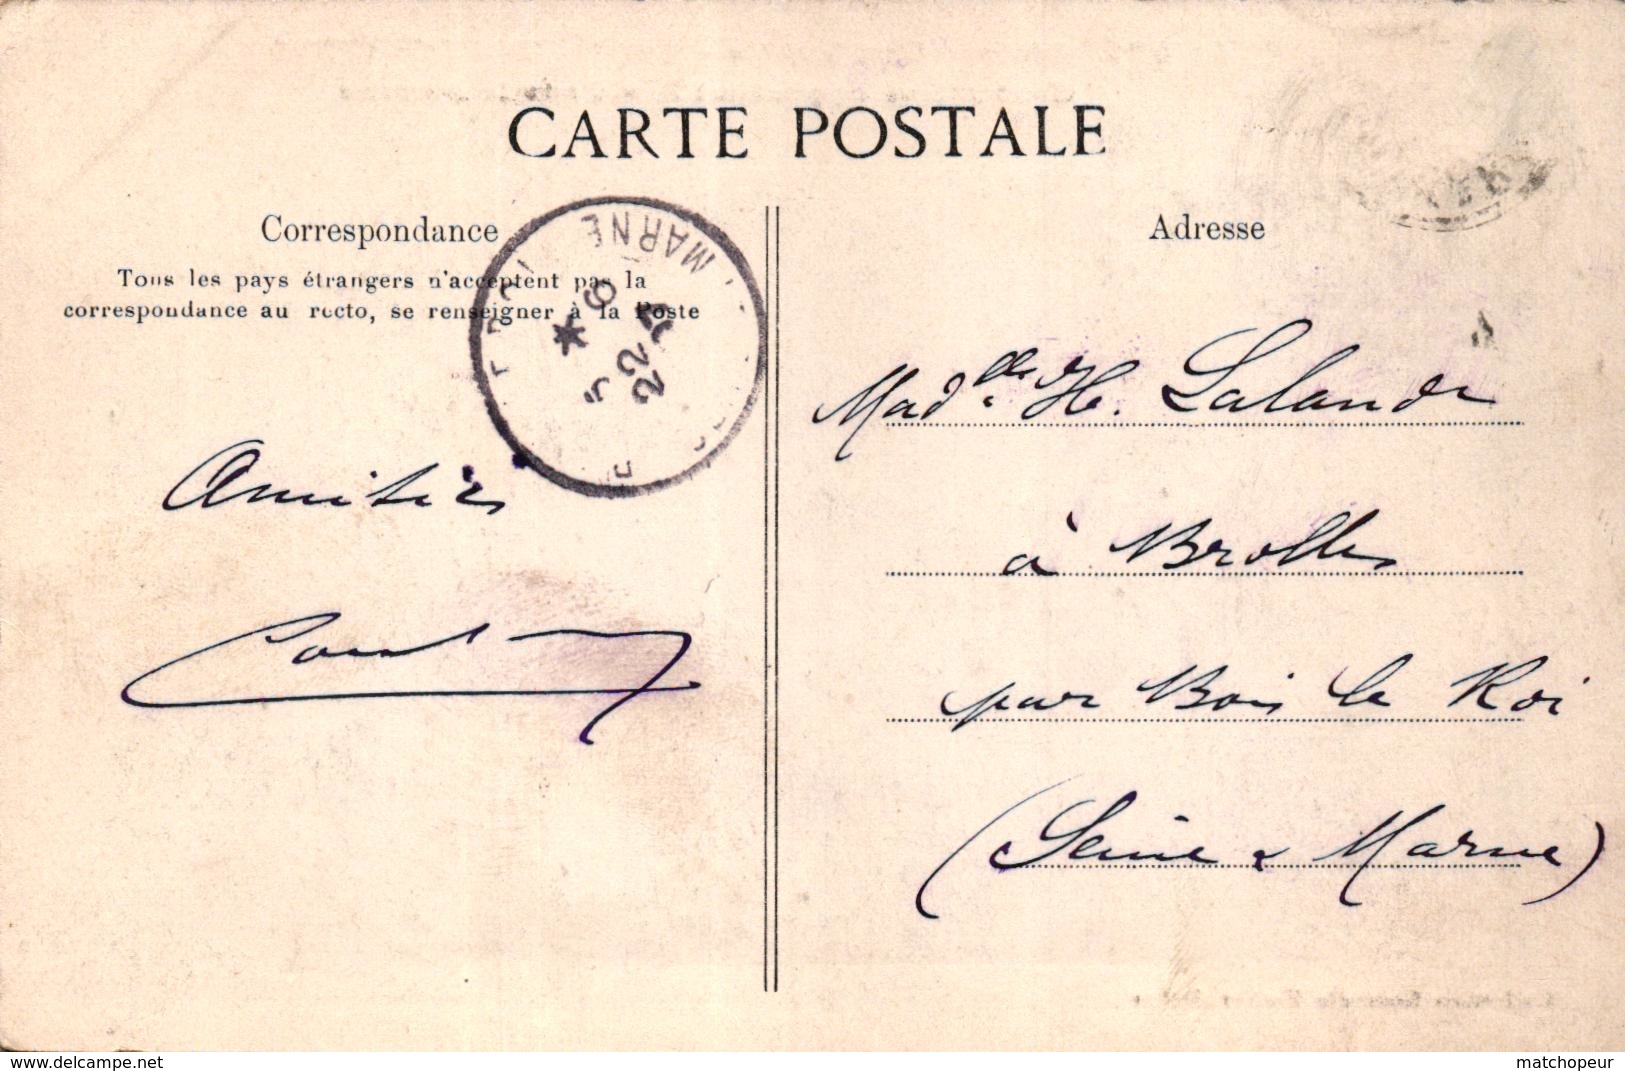 CARTE POSTALE
Correspondance
Tous les pays étrangers n'acceptent pas la
correspondance au recto, se renseigner à la Poste
MARNE
Amitiés
Adresse
Madlle H. Lalande
à Brolles
par Bois le Roi
(Seine & Marne)
www.delcampe.net
matchopeur